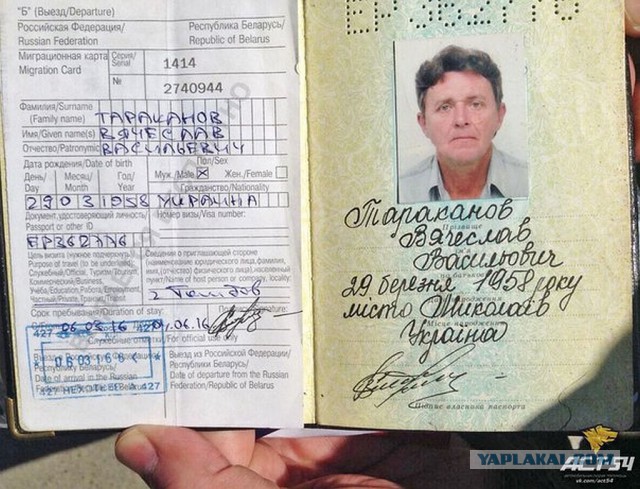 "Б" (Выезд/Departure)
Российская Федерация/ Республика Беларусь/
Russian Federation Republic of Belarus
Миграционная карта Серия/
Migration Card Serial 1414
№ 2740944
Фамилия/Surname
(Family name) ТАРАКАНОВ
Имя/Given name(s) ВЯЧЕСЛАВ
Отчество/Patronymic ВАСИЛЬЕВИЧ
Дата рождения/Date of birth Пол/Sex
День/ Месяц/ Год/ Муж./Male X Жен./Female
Day Month Year Гражданство/Nationality
29 03 1958 УКРАИНА
Документ, удостоверяющий личность/ Номер визы/Visa number:
Passport or other ID
ЕР362776
Цель визита (нужное подчеркнуть)/ Сведения о приглашающей стороне
Purpose of travel (to be underlined): (наименование юридического лица, фамилия,
Служебный/Official, Туризм/Tourism, имя, (отчество) физического лица), населенный
Коммерческая/Business, пункт/Name of host person or company, locality:
Учёба/Education, Работа/Employment,
Частный/Private, Транзит/Transit
Срок пребывания/Duration of stay:
06.03.16 06.16
Служебные отметки/For official use only
427 427
Въезд в Российскую Федерацию/ Выезд из Российской Федерации/
Республику Беларусь/ Республики Беларусь/
Date of arrival in the Russian Date of departure from the Russian
Federation/Republic of Belarus
060316
427 НЕХОТЕЕВКА 427
ЕР362776
Тараканов
Прізвище
Вячеслав
Васильович
по батькові
29 березня 1958 року
місто Миколаїв
Україна
Місце народження
Підпис власника паспорта
YAPLAKAL.COM
АСТ54
vk.com/act54